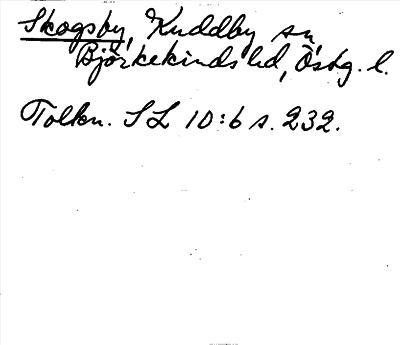 Skogsby, Kuddby sn,
Björkekinds hd, Östg. l.
Tolkn. SL 10:6 s. 232.